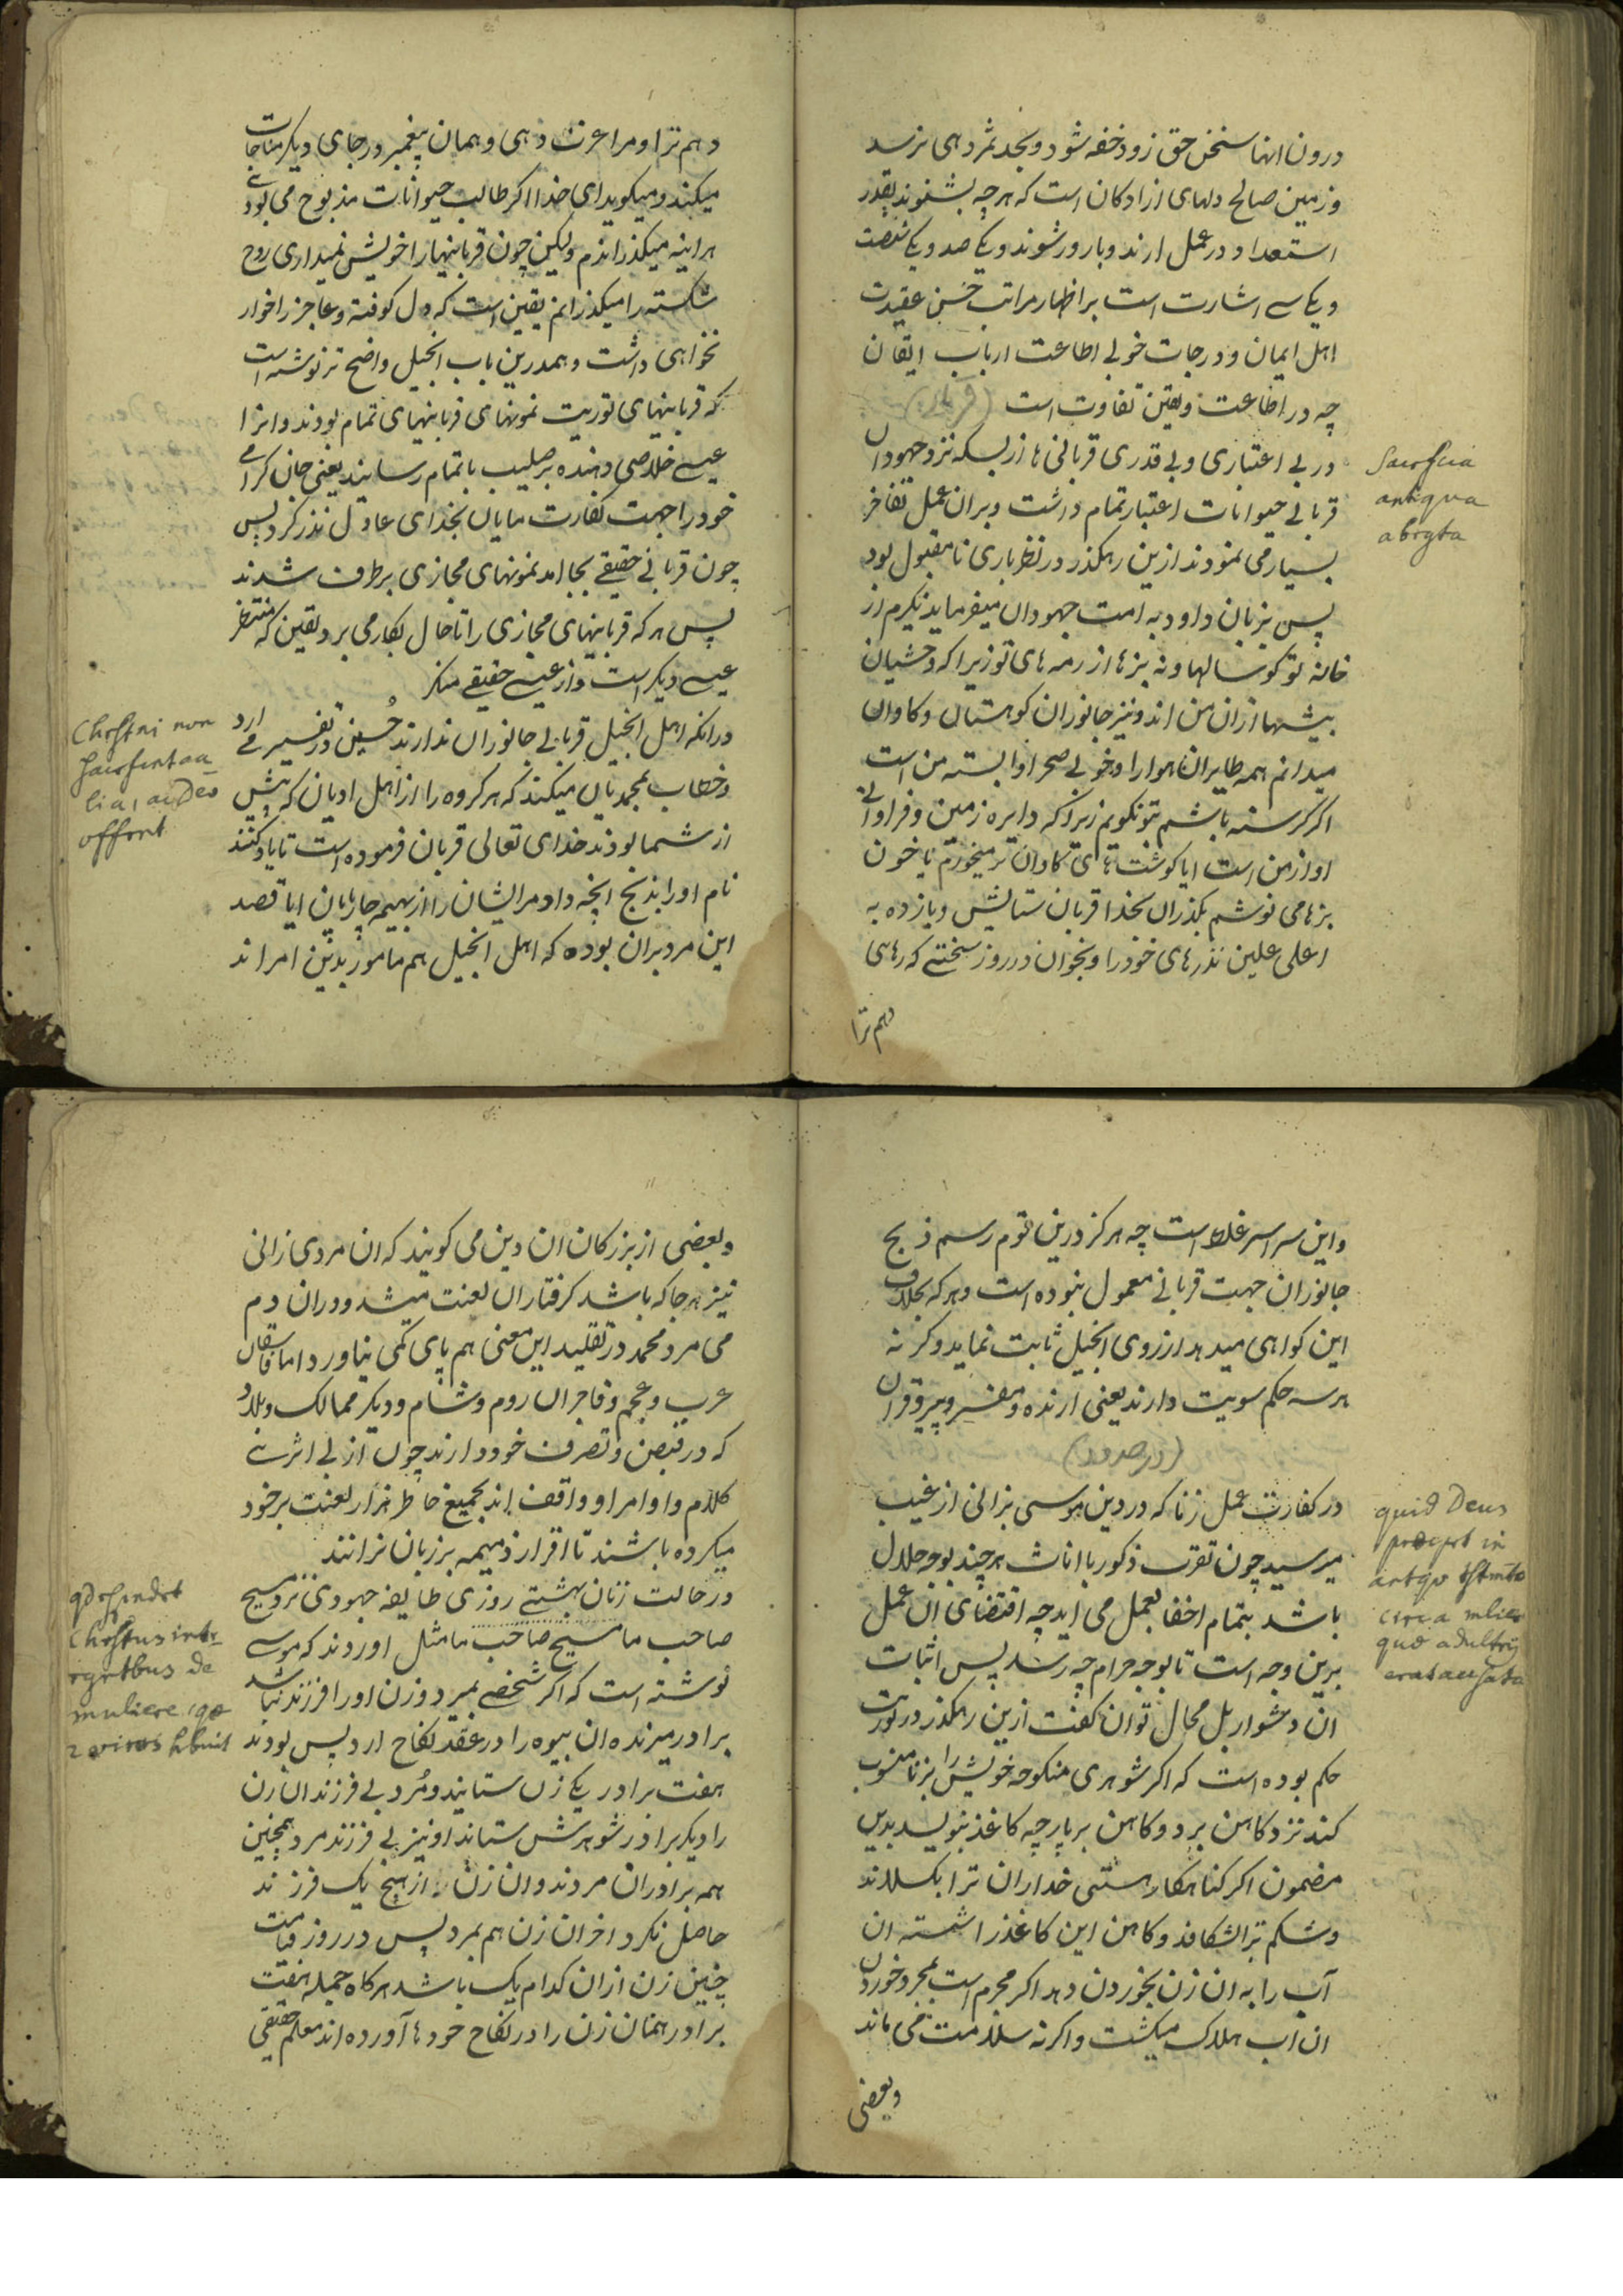 درون انها سخن حق زود خفه شود و بحد ثمر دهی نرسد
و زمین صالح دلهای ازادکان است که هرچه بشنوند بقدر
استعداد در عمل ارند و بارور شوند و یکی صد و یکی شصت
و یکی سی اشارت است بر اظهار مراتب حسن عقیدت
اهل ایمان و درجات خوبی اطاعت ارباب ایقان
چه در اطاعت و یقین تفاوت است
در بی اعتباری و بی قدری قربانی ها از بسکه نزد جهودان
قربانی حیوانات اعتبار تمام داشت و بران عمل تفاخر
بسیار می نمودند ازین رهکذر در نظر باری نامقبول بود
پس بزبان داود به امت جهودان میفرماید نکیرم از
خانه تو کوسالها و نه بزها از رمه های تو زیرا که وحشیان
بیشها ازان من اند و نیز جانوران کوهستان و کاوان
میدانم همه طایران هوا را و خوبی صحرا وابسته من است
اکر کرسنه باشم بتو نکویم زیرا که دایره زمین و فراوانی
او از من است ایا کوشت های کاوان نر میخورم یا خون
بزها می نوشم بکذران بخدا قربان ستایش و بازده به
اعلی علین نذرهای خود را و بخوان در روز سختی که رهایی
دهم ترا
Sacrificia
antiqua
abrogata
دهم ترا و مرا عزت دهی و همان پیغمبر در جای دیکر مناجات
میکند و میکوید ای خدا اکر طالب حیوانات مذبوح می بودی
هراینه میکذراندم ولیکن چون قربانیها را خویش نمیداری روح
شکسته را میکذرانم یقین است که دل کوفته و عاجز را خوار
نخواهی داشت و همدرین باب انجیل واضح تر نوشته است
که قربانیهای توریت نمونهای قربانیهای تمام بودند و انرا
عیسی خلاصی دهنده بر صلیب باتمام رسانید یعنی جان کرامی
خود را جهت کفارت مایان بخدای عادل نذر کرد پس
چون قربانی حقیقی بجا امد نمونهای مجازی برطرف شدند
پس هرکه قربانیهای مجازی را تا حال بکار می برد یقین که منتظر
عیسی دیکر است و از عیسی حقیقی منکر
درانکه اهل انجیل قربانی جانوران ندارند حسین در تفسیر می ارد
و خطاب بمحمدیان میکند که هر کروه را از اهل ادیان که پیش
از شما بودند خدای تعالی قربان فرموده است تا یاد کنند
نام او را بذبح انچه داد مرایشان را از بهیمه چارپایان ایا قصد
این مرد بران بوده که اهل انجیل هم مامور بدین امر اند
Christiani non
sacrificant aa_
lia, ac Deo
offerunt
و این سراسر غلط است چه هرکز درین قوم رسم ذبح
جانوران جهت قربانی معمول نبوده است و هرکه بخلاف
این کواهی میدهد از روی انجیل ثابت نماید وکرنه
هر سه حکم سویت دارند یعنی ارنده و مفسر و پیرو قران
در کفارت عمل زنا که در دین موسی بزانی از غیب
میرسید چون تقرب ذکور با اناث هرچند بوجه حلال
باشد بتمام اخفا بعمل می اید چه اقتضای ان عمل
برین وجه است تا بوجه حرام چه رسد پس اثبات
ان دشوار بل محال توان کفت ازین رهکذر در توریت
حکم بوده است که اکر شوهری منکوحه خویش را بزنا منسوب
کند نزد کاهن برد و کاهن بر پارچه کاغذ بنویسد بدین
مضمون اکر کناهکار هستی خدا ران ترا بکسلاند
و شکم ترا شکافد و کاهن این کاغذ را شسته ان
آب را به ان زن بخوردن دهد اکر مجرم است بمجرد خوردن
ان اب هلاک میکشت و اکرنه سلامت می ماند
و بعضی
quid Deus
in
circa
que adulterij
erat accusata
و بعضی از بزرکان ان دین می کویند که ان مردی زانی
نیز هرجا که باشد کرفتار ان لعنت میشد و دران دم
می مرد محمد در تقلید این معنی هم پای کمی نیاورد اما فاسقان
عرب و عجم و فاجران روم و شام و دیکر ممالک و بلاد
که در قبض و تصرف خود دارند چون از بی اثری
کلام و اوامر او واقف اند بجمیع خاطر هزار لعنت بر خود
میکرده باشند تا اقرار ذمیمه بر زبان نرانند
در حالت زنان بهشتی روزی طایفه جهودی نزد مسیح
صاحب ما مسیح صاحب ما مثل اوردند که موسی
نوشته است که اکر شخصی بمیرد و زن او را فرزند نباشد
برادر میرنده ان بیوه را در عقد نکاح ارد پس بودند
هفت برادر یکی زن ستانید و مرد بی فرزند ان زن
را دیکر برادر شوهرش ستاند او نیز بی فرزند مرد همچنین
همه برادران مردند و ان زن از هیچ یک فرزند
حاصل نکرد اخر ان زن هم بمرد پس در روز قیامت
چنین زن ازان کدام یک باشد هرکاه جمله هفت
برادر همان زن را در نکاح خودها آورده اند معلم حقیقی
Christus
de
muliere